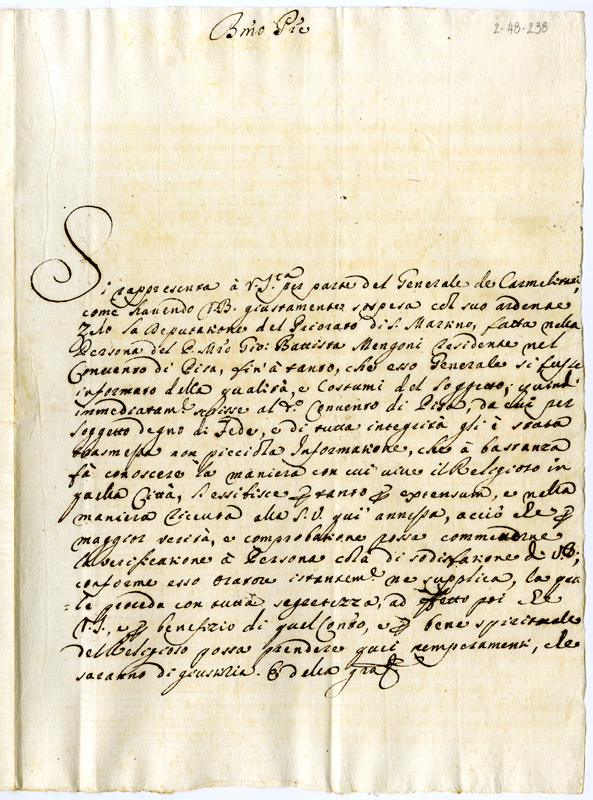 2-48-238
Bmo Pre
Si rappresenta à V. S.ta per parte del Generale de Carmelitani,
come havendo V.B. giustamente sospesa col suo ardente
Zelo la Deputatione del Priorato di S. Martino, fatta nella
Persona del P. Mro Gio: Battista Mengoni Residente nel
Convento di Pisa, fin'à tanto, che esso Generale si fusse
informato della qualità, e Costumi del soggetto; quindi
immediatam.e scrisse al d.o Convento di Pisa, da cui per
soggetto degno di Fede, e di tutta integrità gli è stata
trasmessa non picciola Informatione, che à bastanza
fà conoscere la maniera con cui vive il Religioso in
quella Città, S'essibisce per tanto per extensum, e nella
maniera ricevuta alla S.V. qui annessa, acciò che per
maggior verità, e comprobatione possa commetterne
la verificatione à Persona colà di sodisfatione di V.B;
conforme esso Oratore istantem.e ne supplica, la qua
=le proceda con tutta segretezza, ad effetto poi che
V.S., e per benefizio di quel Conto, e per bene spirituale
del Religioso possa prendere quei temperamenti, che
saranno di giustizia. E della gra